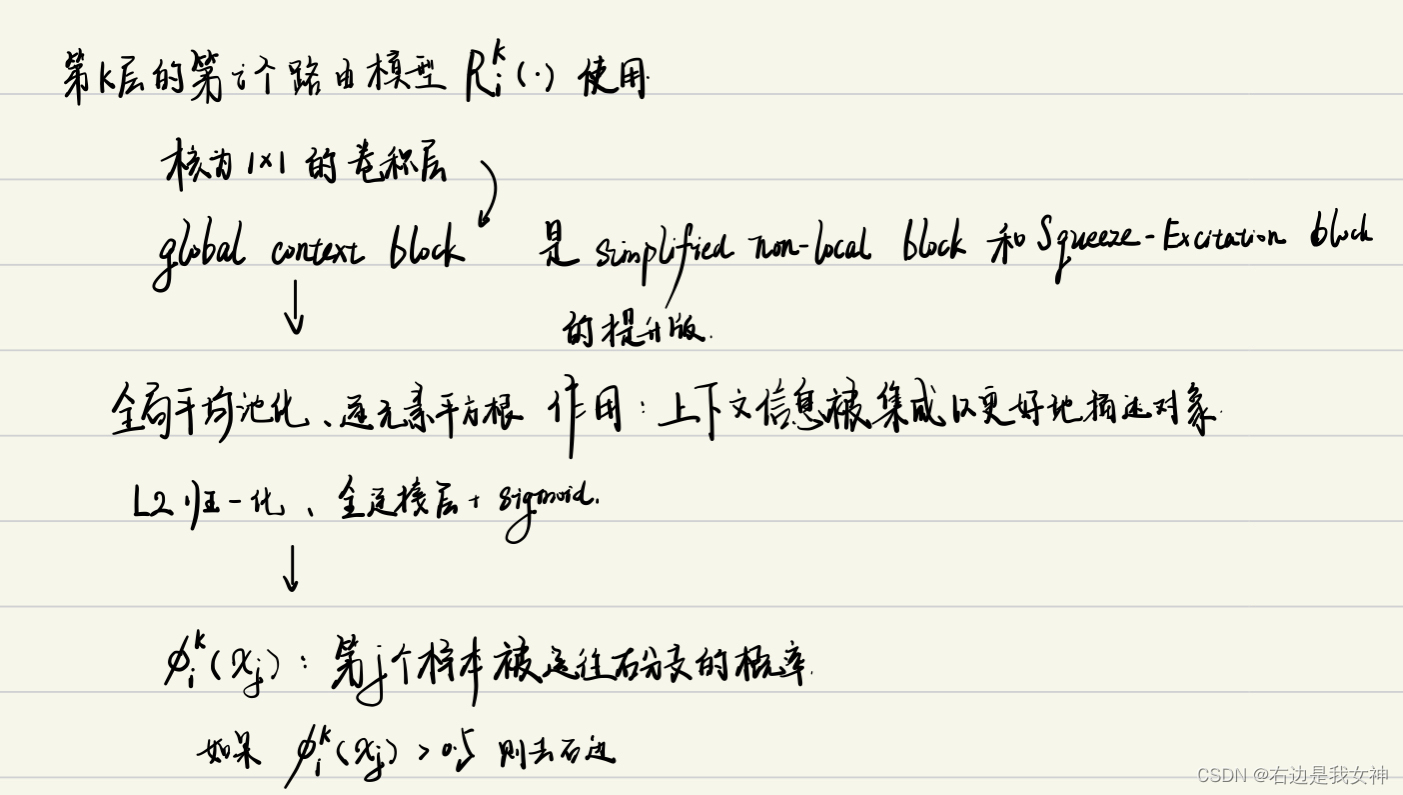 第k层的第i个路由模型 Rᵢᵏ(·) 使用
核为1×1的卷积层
global context block 是 simplified non-local block 和 Squeeze-Excitation block
的提升版.
全局平均池化、逐元素平方根 作用：上下文信息被集成以更好地描述对象.
L2归一化、全连接层+sigmoid.
ϕᵢᵏ(xⱼ)：第j个样本被送往右分支的概率.
如果 ϕᵢᵏ(xⱼ) > 0.5 则去右边
CSDN @右边是我女神